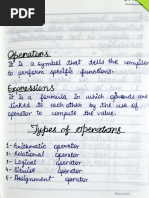 Operators
It is a symbol that tells the compiler
to perform specific functions.
Expressions
It is a formula in which operands are
linked to each other by the use of
operator to compute the value.
Types of operators
1- Arithmatic operator
2- Relational operator
3- Logical operator
4- Bitwise operator
5- Assignment operator